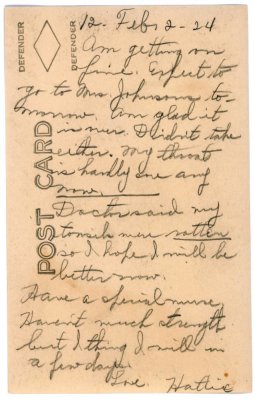 DEFENDER
DEFENDER
POST CARD
12- Feb, 2-24
Am getting on
fine. Expect to
go to Mrs. Johnsons to-
morrow. Am glad it
is over. I didn't take
either. My throat
is hardly sore any
now.
Doctor said my
tonsils were rotten
so I hope I will be
better now.
Have a special nurse.
Haven't much strength
but I thing I will in
a few days.
Love Hattie